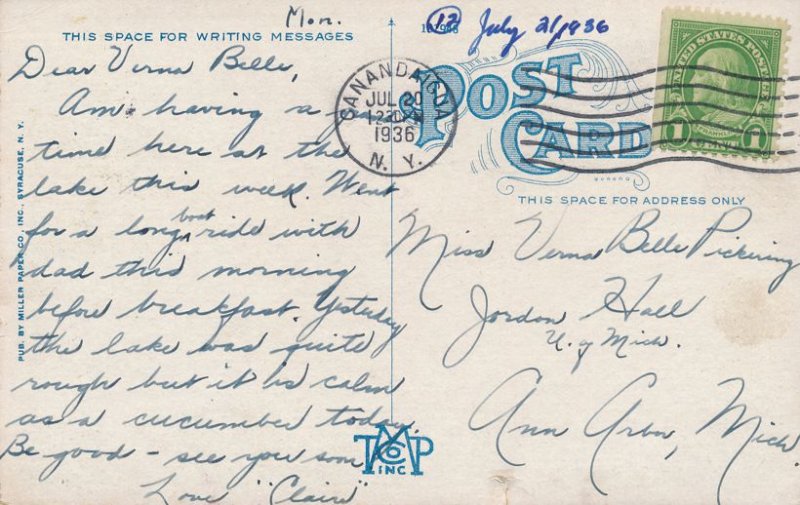 Mon.
THIS SPACE FOR WRITING MESSAGES
Dear Verna Belle,
Am having a
time here at the
lake this week. Went
for a long boat ride with
dad this morning
before breakfast. Yesterday
the lake was quite
rough but it is calm
as a cucumber today.
Be good - see you soon
Love "Claire"
PUB. BY MILLER PAPER CO., INC., SYRACUSE, N. Y.
12 July 21/1936
POST
CARD
CANANDAIGUA
JUL 20
12
1936
N. Y.
UNITED STATES POSTAGE
FRANKLIN
1 CENT 1
THIS SPACE FOR ADDRESS ONLY
Miss Verna Belle Pickering
Jordon Hall
U. of Mich.
Ann Arbor, Mich.
MPCo
INC